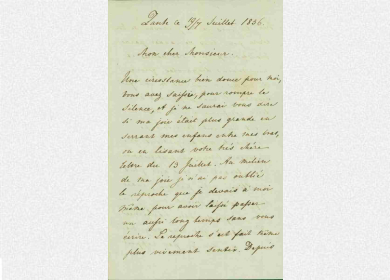 ce 5/7 Juillet 1836.
Mon cher Monsieur.
Une circonstance bien douce pour moi,
vous avez saisire, pour rompre le
silence, et je ne saurai vous dire
si ma joie était plus grande en
serrant mes enfans entre mes bras,
ou en lisant votre très chère
lettre du 13 Juillet. Au milieu
de ma joie je n'ai pas oublié
le reproche que je devais à moi
même, pour avoir laissé passer
un aussi long temps sans vous
écrire. Ce reproche s'est fait même
plus vivement sentir. Depuis